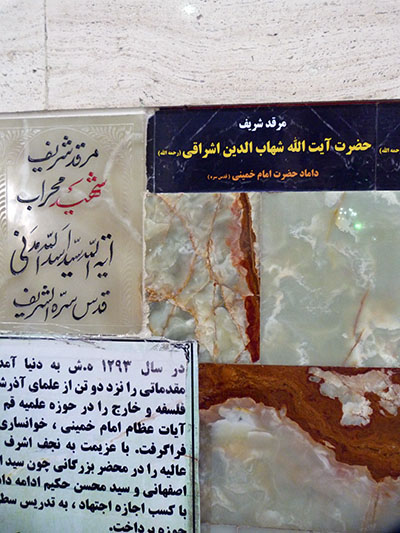 مرقد شریف
حضرت آیت الله شهاب الدین اشراقی (رحمه الله)
داماد حضرت امام خمینی (قدس سره)
(رحمه الله)
مرقد شریف
شهید محراب
آیة الله سید اسد الله مدنی
قدس سره الشریف
در سال ۱۲۹۳ ه.ش به دنیا آمد
مقدماتی را نزد دو تن از علمای آذرش
فلسفه و خارج را در حوزه علمیه قم
آیات عظام امام خمینی ، خوانساری
فراگرفت. با عزیمت به نجف اشرف
عالیه را در محضر بزرگانی چون سید ا
اصفهانی و سید محسن حکیم ادامه داد
با کسب اجازه اجتهاد ، به تدریس سط
حوزه پرداخت.